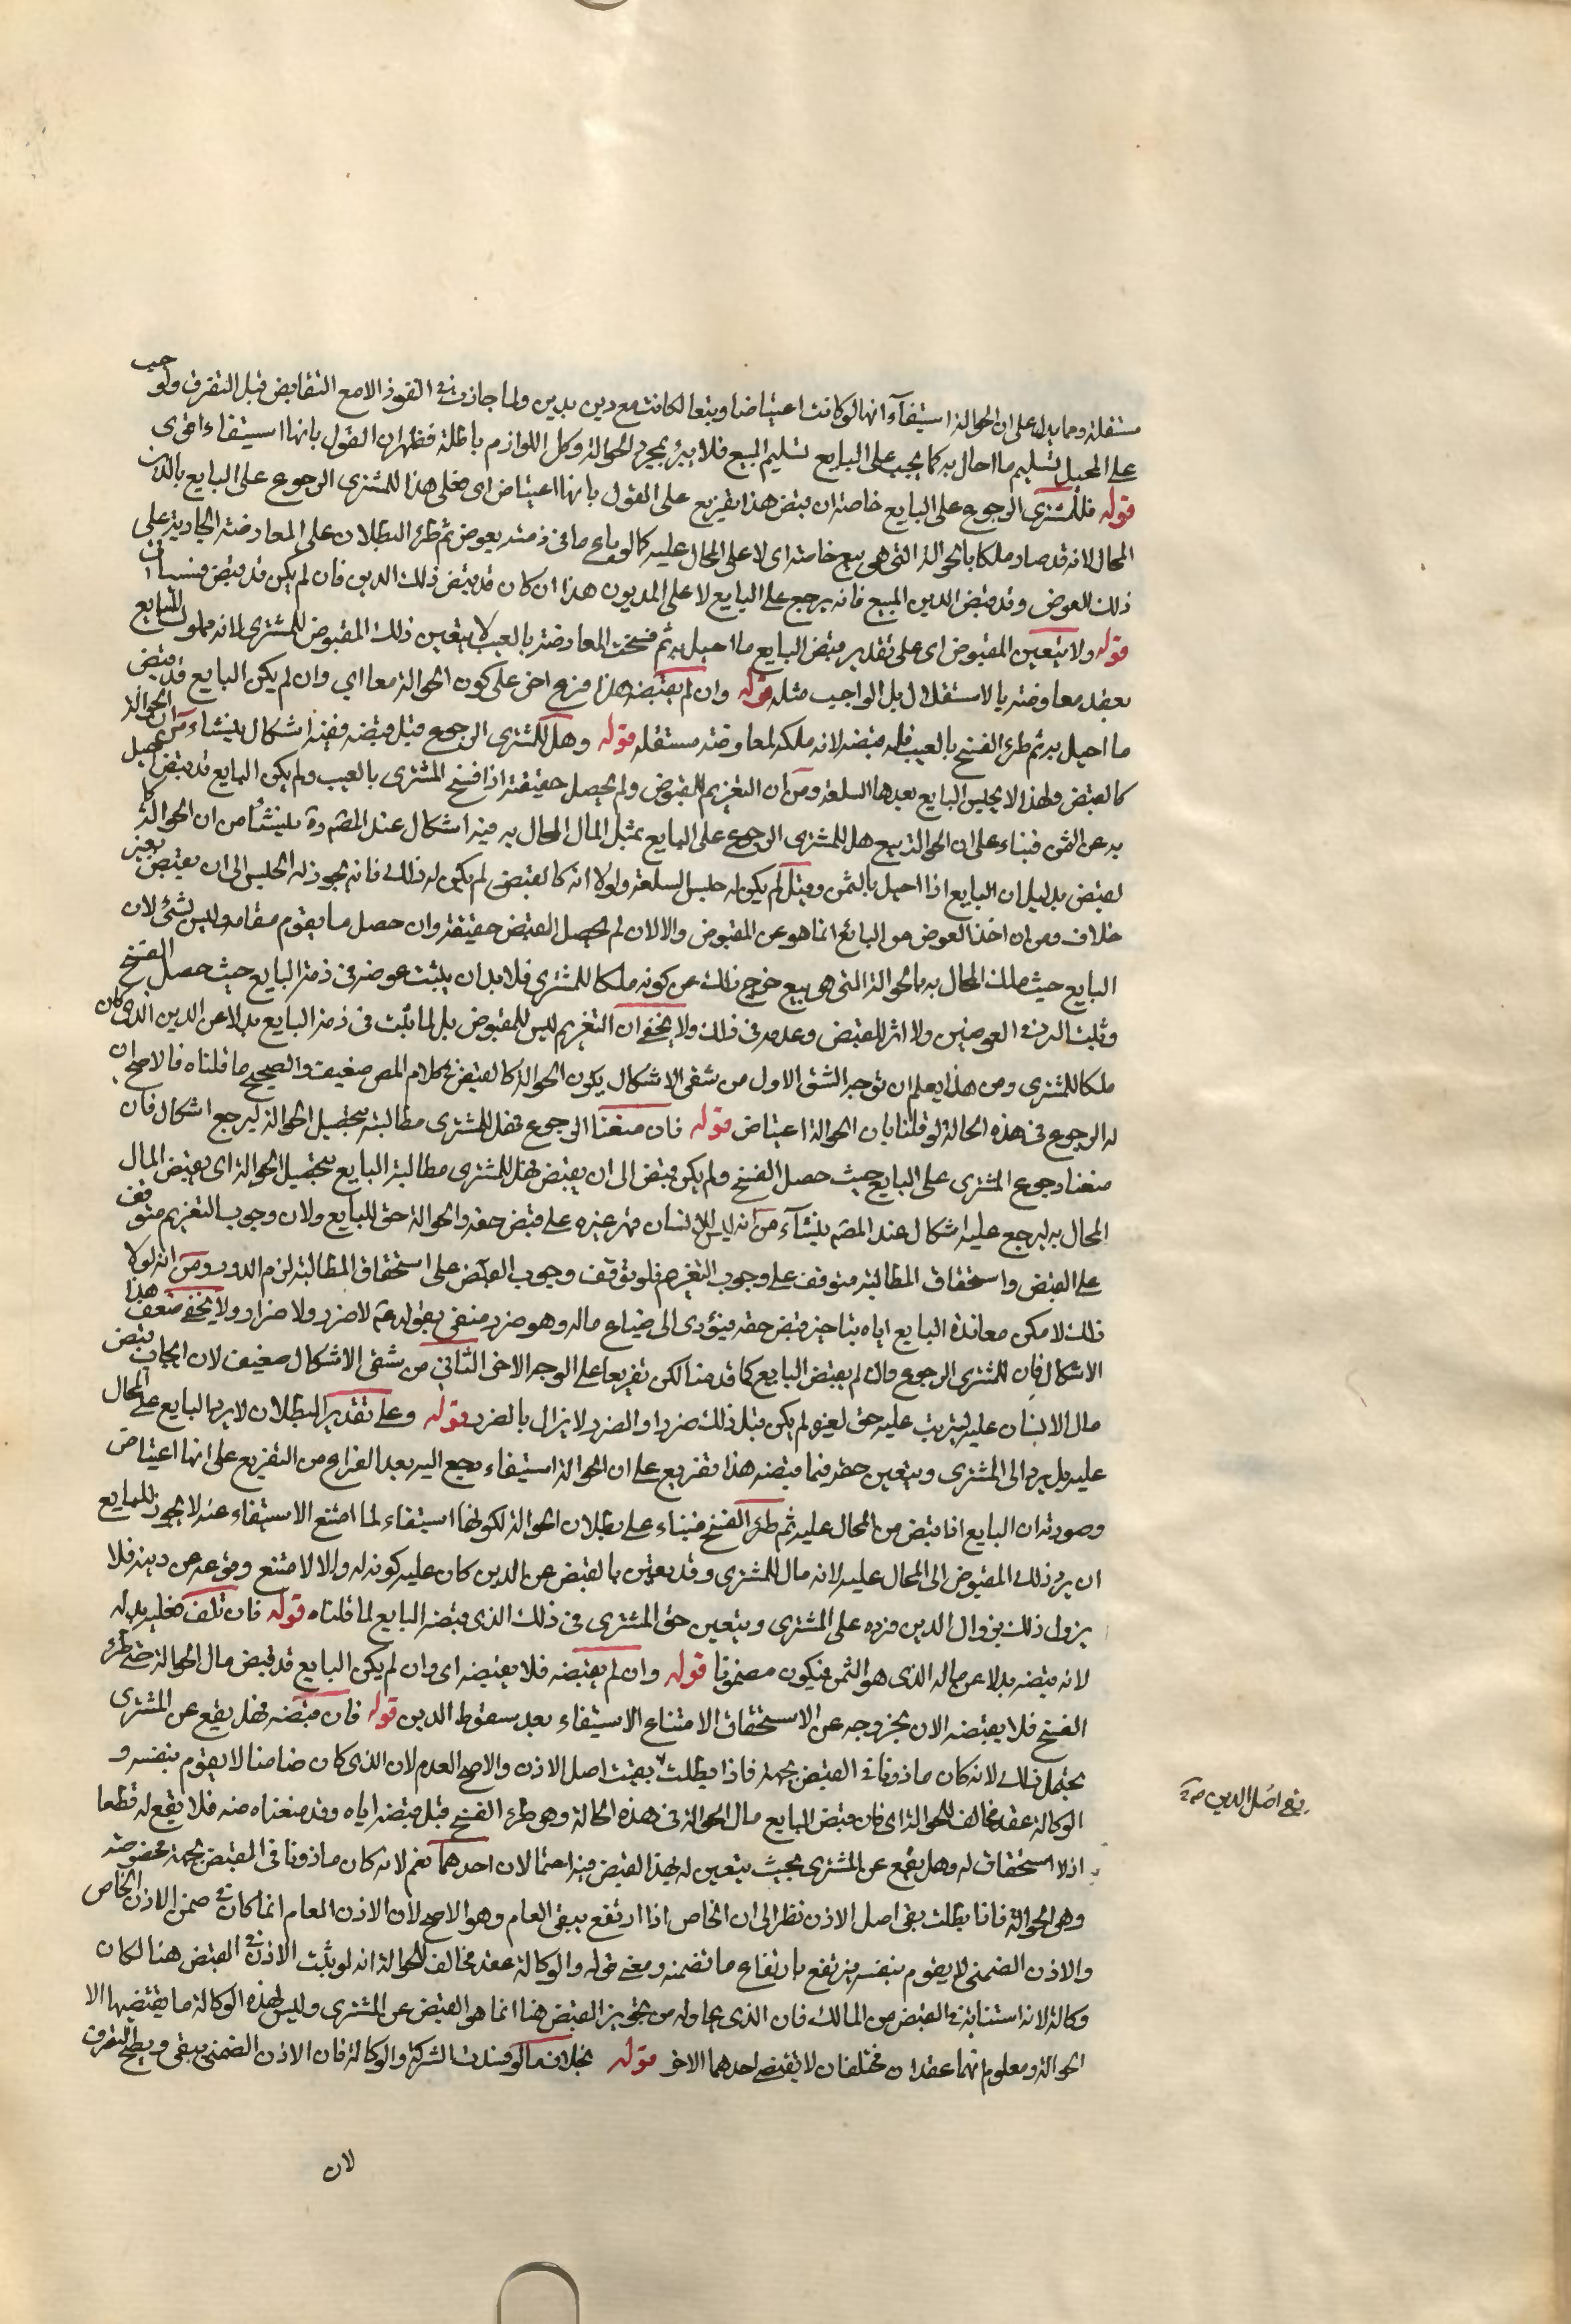 مستقلة ومما يدل على ان الحوالة استيفآء انها لو كانت اعتياضا وبيعا لكانت بيع دين بدين ولما جازت في النقود الا مع التقابض قبل التفرق ولوجب
على المحيل تسليم ما احال به كما يجب على البايع تسليم المبيع فلا يبرئ بمجرد الحوالة وكل اللوازم باطلة فظهر ان القول بانها استيفاء اقوى
قوله فللمشترى الرجوع على البايع خاصة ان قبض هذا تفريع على القول بانها اعتياض اى فعلى هذا للمشترى الرجوع على البايع بالدين
المحال لانه قد صار ملكا بالحوالة التى هى بيع خاصة اى لا على المحال عليه كما لو باع ما فى ذمته بعوض ثم طرء البطلان على المعاوضة الجارية على
ذلك العوض وقد قبض الدين المبيع فانه يرجع على البايع لا على المديون هذا ان كان قد قبض ذلك الدين فان لم يكن قد قبض فسيأتى
قوله ولا يتعين المقبوض اى على تقدير قبض البايع ما احيل به ثم فسخت المعاوضة بالعيب لا يتعين ذلك المقبوض للمشترى لانه مملوك للبايع
بعقد معاوضة بالاستقلال بل الواجب مثله قوله وان لم يقبضه هذا فرع اخر على كون الحوالة معا اي وان لم يكن البايع قد قبض
ما احيل به ثم طرء الفسخ بالعيب فله قبضه لانه ملكه لمعاوضة مستقله قوله وهل للمشترى الرجوع قبل قبضه ففيه اشكال ينشاء من ان الحوالة
كالقبض ولهذا لا يحبس البايع بعدها السلعة ومن ان التغريم للمقبوض ولم يحصل حقيقة اذا فسخ المشترى بالعيب ولم يكن البايع قد قبض ما احيل
به عن الثمن فبناء على ان الحوالة بيع هل للمشترى الرجوع على البايع بمثل المال المحال به فيه اشكال عند المص وة ينشأ من ان الحوالة كا
لقبض بدليل ان البايع اذا احيل بالثمن وقبل لم يكن له حبس السلعة ولولا انه كالقبض لم يكن له ذلك فانه يجوز له الحبس الى ان يقبض بغير
خلاف ومن ان اخذ العوض من البائع انما هو عن المقبوض والا لان لم يحصل القبض حقيقة وان حصل ما يقوم مقامه وليس بشئ لان
البايع حيث ملك المحال به بالحوالة التى هى بيع خرج ذلك عن كونه ملكا للمشترى فلا بد ان يثبت عوضه فى ذمة البايع حيث حصل الفسخ
وثبت الرد في العوضين ولا اثر للقبض وعدمه فى ذلك ولا يخفى ان التغريم ليس للمقبوض بل لما يثبت فى ذمة البايع بدلا عن الدين الذى كان
ملكا للمشترى ومن هذا يعلم ان توجيه الشق الاول من شقى الاشكال بكون الحوالة كالقبض في كلام المص ضعيف والصحيح ما قلناه فالاصح ان
له الرجوع فى هذه الحالة لو قلنا بان الحوالة اعتياض قوله فان منعنا الرجوع فهل للمشترى مطالبته بتحصيل الحوالة ليرجع اشكال فان
منعنا رجوع المشترى على البايع حيث حصل الفسخ ولم يكن قبض الى ان يقبض فهل للمشترى مطالبة البايع بتحصيل الحوالة اى بقبض المال
المحال به ليرجع عليه اشكال عند المصَ ينشآء من انه ليس للانسان قهر غيره على قبض حقه والحوالة حق للبايع ولان وجوب التغريم متوقف
على القبض واستحقاق المطالبة متوقف على وجوب التغرم فلو توقف وجوب القبض على استحقاق المطالبة لزم الدور ومن انه لولا
ذلك لامكن معاندة البايع اياه بتاخير قبض حقه فيؤدى الى ضياع ماله وهو ضرر منفى بقوله ع لا ضرر ولا ضرار ولا يخفى ضعف هذا
الاشكال فان للمشترى الرجوع وان لم يقبض البايع كما قدمنا لكن تفريعا على الوجه الاخر الثانى من شقى الاشكال ضعيف لان ايجاب قبض
مال الانسان عليه ليترتب عليه حق لغيره لم يكن قبل ذلك ضررا والضرر لا يزال بالضرر قوله وعلى تقدير البطلان لا يرد البايع على المحال
عليه بل يرد الى المشترى ويتعين حقه فيما قبضه هذا تفريع على ان الحوالة استيفاء رجع اليه بعد الفراغ من التفريع على انها اعتياض
وصورته ان البايع اذا قبض من المحال عليه ثم طرء الفسخ فبناء على بطلان الحوالة لكونها استيفاء لما امتنع الاستيفاء عنه لا يجوز للبايع
ان يرد ذلك المقبوض الى المحال عليه لانه مال للمشترى وقد تعين بالقبض عن الدين كان عليه كونه له والا لامتنع وقوعه عن دينه فلا
يزول ذلك بزوال الدين فرده على المشترى ويتعين حق المشترى فى ذلك الذى قبضه البايع لما قلناه قوله فان تلف فعليه بدله
لانه قبضه بدلا عن ماله الذى هو الثمن فيكون مضمونا قوله وان لم يقبضه فلا يقبضه اى وان لم يكن البايع قد قبض مال الحوالة حتى طرء
الفسخ فلا يقبضه الان لخروجه عن الاستحقاق لامتناع الاستيفاء بعد سقوط الدين قوله فان قبضه فهل يقع عن المشترى
يحتمل ذلك لانه كان ماذونا في القبض بجهة فاذا بطلت بقيت اصل الاذن والاصح العدم لان الذى كان ضامنا لا يقوم بنفسه و
الوكالة عقد مخالف للحوالة اى فان قبض البايع مال الحوالة فى هذه الحالة وهى طرء الفسخ قبل قبضه اياه وقد منعناه منه فلا يقع له قطعا
اذ لا استحقاق له وهل يقع عن المشترى بحيث يتعين له بهذا القبض فيه احتمالان احدهما نعم لانه كان ماذونا فى القبض بجهة مخصوصة
وهى الحوالة فاذا بطلت بقى اصل الاذن نظرا الى ان الخاص اذا ارتفع يبقى العام وهو الاصح لان الاذن العام انما كان فى ضمن الاذن الخاص
والاذن الضمنى لا يقوم بنفسه فيرتفع بارتفاع ما تضمنه ومعنى قوله والوكالة عقد مخالف للحوالة انه لو يثبت الاذن في القبض هنا لكان
وكالة لانه استنابة في القبض من المالك فان الذى يحاوله من تجويز القبض هنا انما هو القبض عن المشترى وليس لهذه الوكالة ما يقتضيها الا
الحوالة ومعلوم انهما عقدان مختلفان لا يقتضى احدهما الاخر قوله بخلاف ما لو فسدت الشركة والوكالة فان الاذن الضمنى يبقى ويصح التصرف
لان
اصل الدين